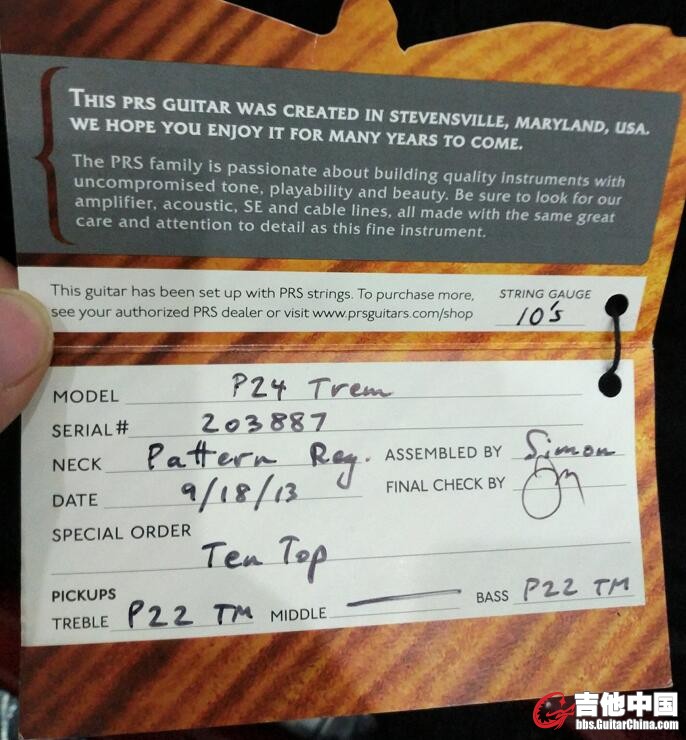 THIS PRS GUITAR WAS CREATED IN STEVENSVILLE, MARYLAND, USA.
WE HOPE YOU ENJOY IT FOR MANY YEARS TO COME.
The PRS family is passionate about building quality instruments with
uncompromised tone, playability and beauty. Be sure to look for our
amplifier, acoustic, SE and cable lines, all made with the same great
care and attention to detail as this fine instrument.
This guitar has been set up with PRS strings. To purchase more,
see your authorized PRS dealer or visit www.prsguitars.com/shop
STRING GAUGE
10's
MODEL P24 Trem
SERIAL# 203887
NECK Pattern Reg. ASSEMBLED BY Simon
DATE 9/18/13 FINAL CHECK BY
SPECIAL ORDER
Ten Top
PICKUPS
TREBLE P22 TM MIDDLE BASS P22 TM
吉他中国
bbs.GuitarChina.com